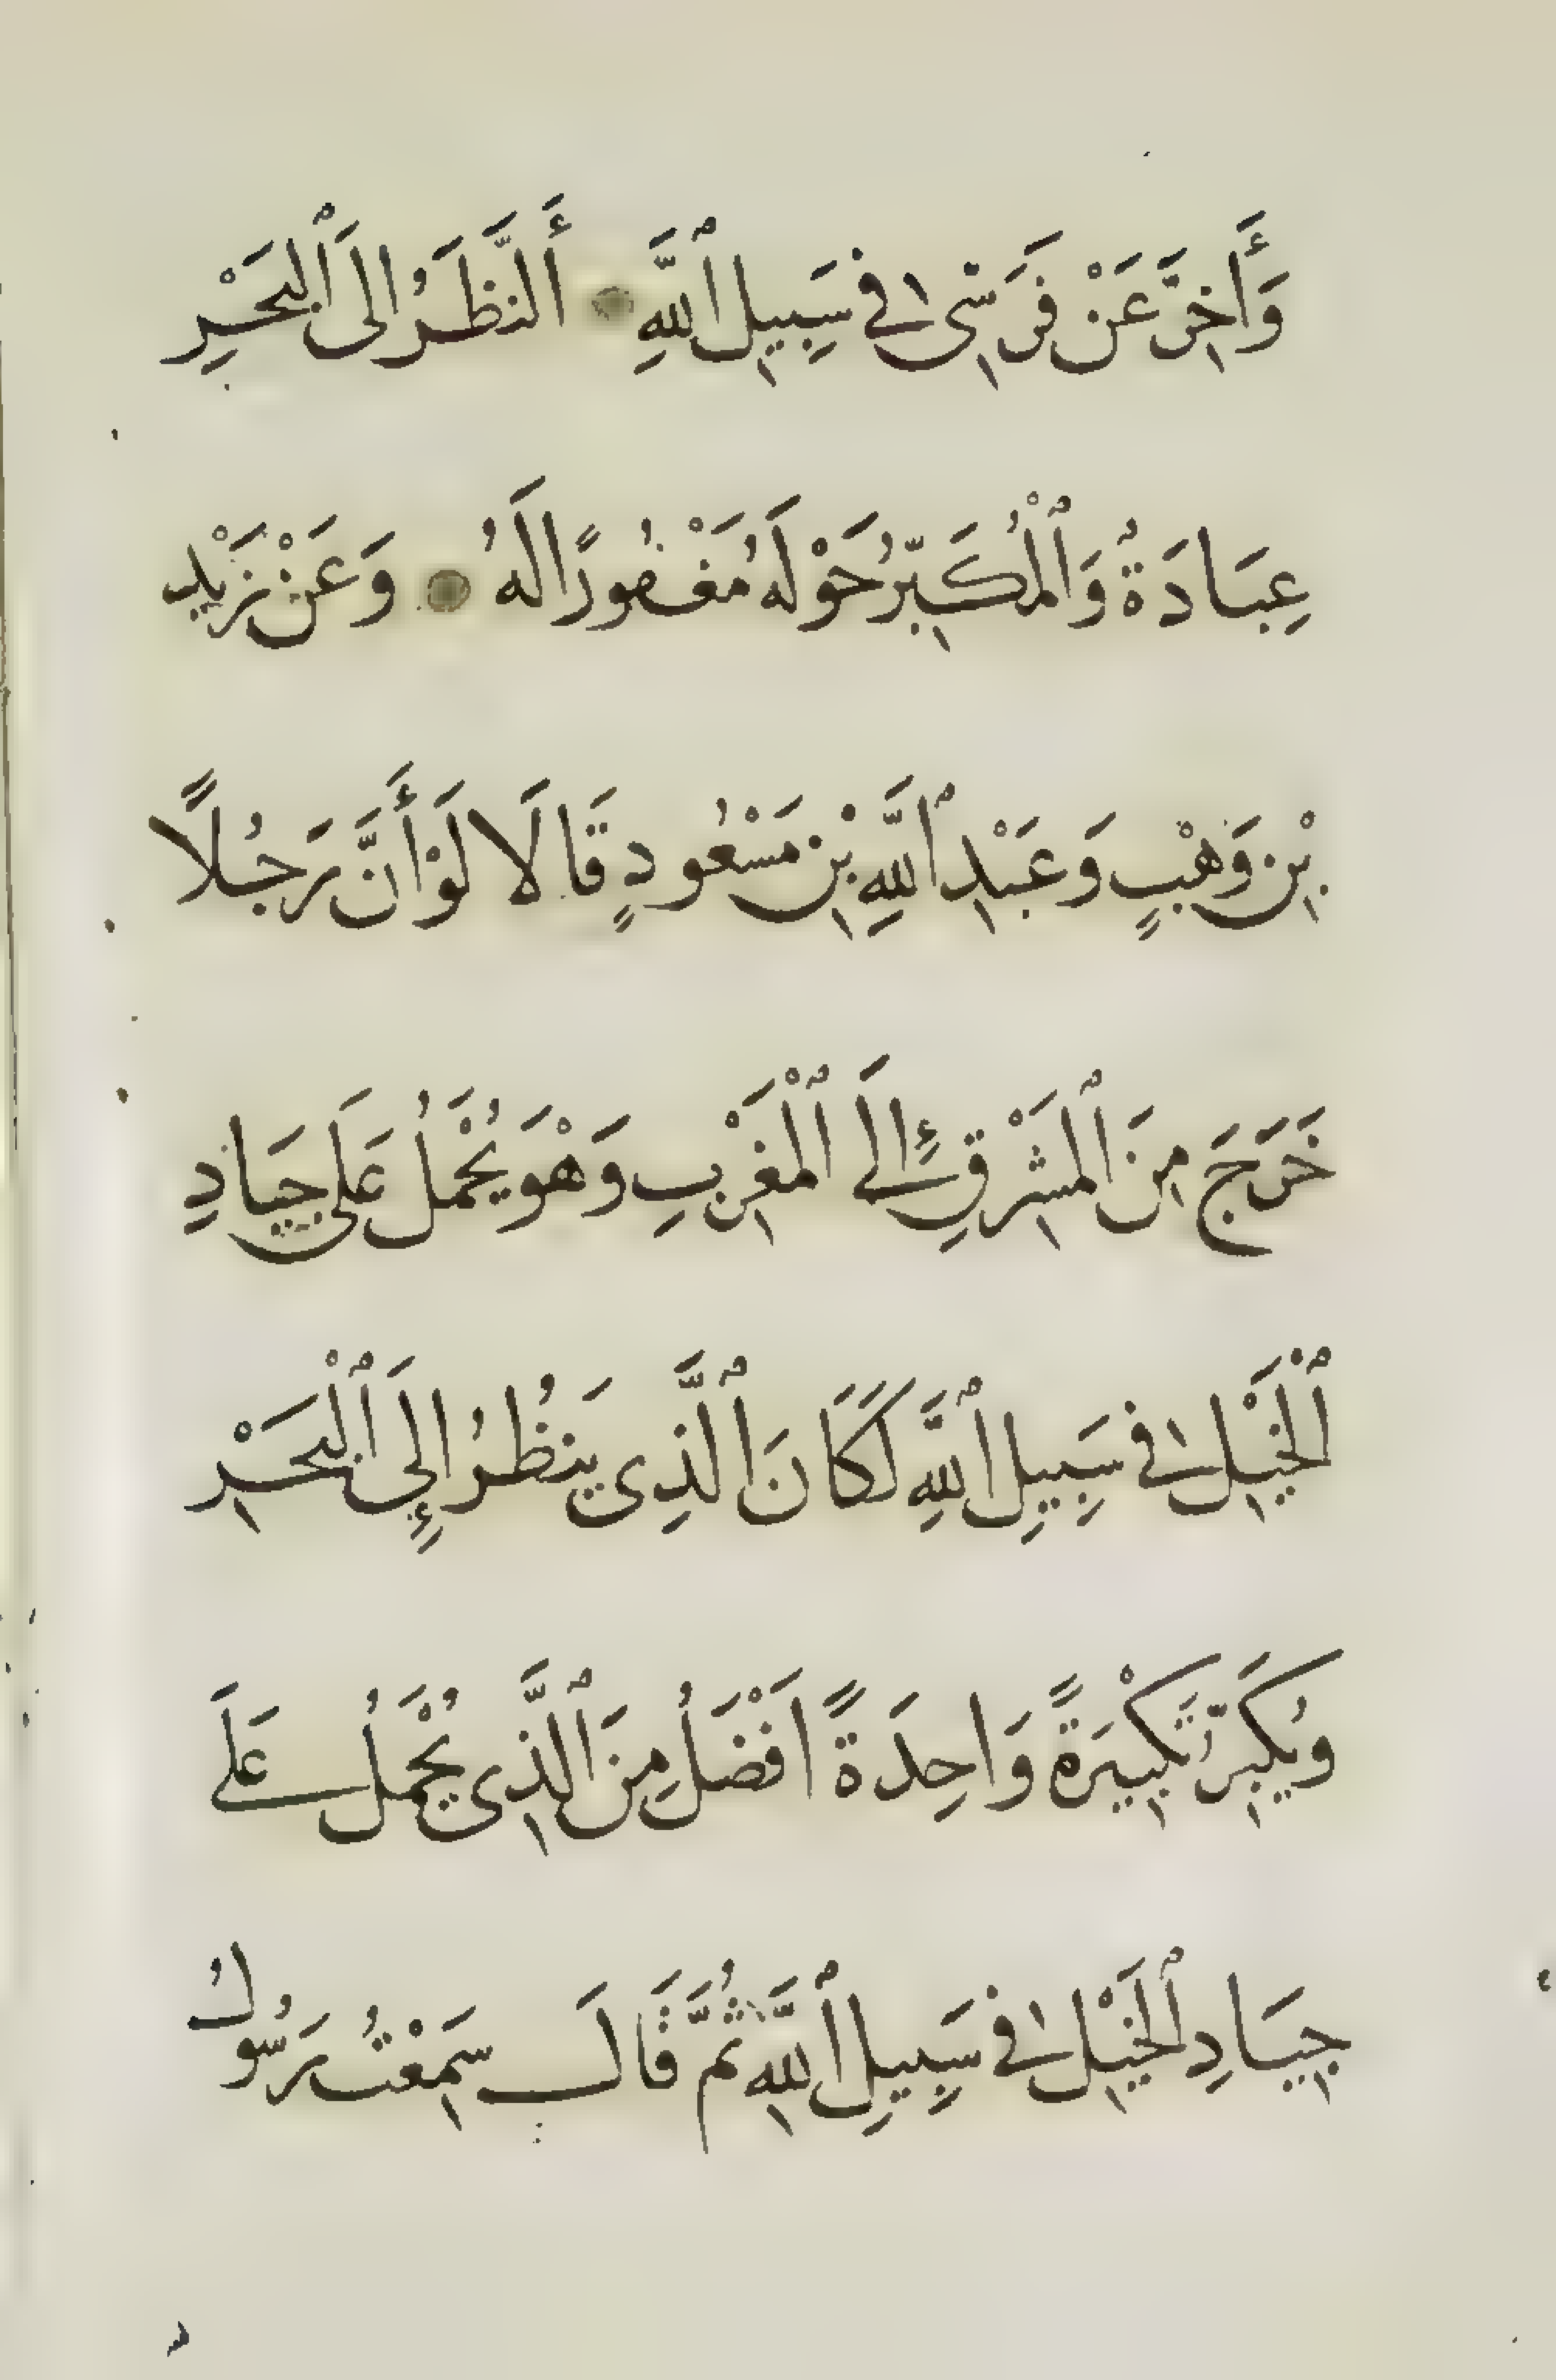 وَأَخِرَّ عَنْ فَرَسٰى فِى سَبِيلِ ٱللَّهِ أَلنَّظَرُ الَى ٱلْبَحْرِ
عِبَادَةٌ وَٱلْمُكَبِّرُ حَوْلَهُ مُغْفُورًا لَهُ وَعَنْ زَيْدِ
بْنِ وَهْبٍ وَعَبْدِ ٱللَّهِ بْنِ مَسْعُودٍ قَالَا لَوْ أَنَّ رَجُلًا
خَرَجَ مِنَ ٱلْمَشْرِقِ إِلَى ٱلْمَغْرِبِ وَهْوَ يُحْمَلُ عَلَى جِيَادِ
ٱلْخَيْلِ فِى سَبِيلِ ٱللَّهِ لَكَانَ ٱلَّذِى يَنظُرُ إِلَى ٱلْبَحْرِ
وَيُكَبِّرُ تَكْبِيرَةً وَاحِدَةً افْضَلُ مِنَ ٱلَّذِى يُحْمَلُ عَلَى
جِيَادِ ٱلْخَيْلِ فِى سَبِيلِ ٱللَّهِ ثُمَّ قَالَ سَمِعْتُ رَسُولُ